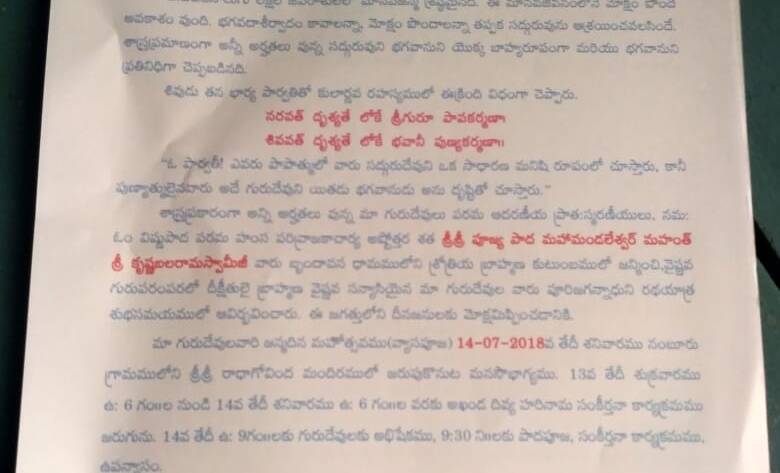 అవకాశం వుంది. భగవదాశీర్వాదం కావాలన్నా, మోక్షం పొందాలన్నా తప్పక సద్గురువును ఆశ్రయించవలసిందే.
శాస్త్రప్రమాణంగా అన్నీ అర్హతలు వున్న సద్గురువుని భగవానుని యొక్క బాహ్యరూపంగా మరియు భగవానుని
ప్రతినిధిగా చెప్పబడినది.
శివుడు తన భార్య పార్వతితో కులార్ణవ రహస్యములో ఈక్రింది విధంగా చెప్పారు.
నరవత్ దృశ్యతే లోకే శ్రీగురూ పాపకర్మణా।
శివవత్ దృశ్యతే లోకే భవానీ పుణ్యకర్మణా॥
"ఓ పార్వతీ! ఎవరు పాపాత్ములో వారు సద్గురుదేవుని ఒక సాధారణ మనిషి రూపంలో చూస్తారు, కానీ
పుణ్యాత్ములైనవారు అదే గురుదేవుని యితడు భగవానుడు అను దృష్టితో చూస్తారు."
శాస్త్రప్రకారంగా అన్ని అర్హతలు వున్న మా గురుదేవులు పరమ ఆదరణీయ ప్రాత:స్మరణీయులు, నమ:
ఓం విష్ణుపాద పరమ హంస పరివ్రాజకాచార్య అష్టోత్తర శత శ్రీశ్రీ పూజ్య పాద మహామండలేశ్వర్ మహంత్
శ్రీ కృష్ణబలరామస్వామీజీ వారు బృందావన ధామములోని శ్రోత్రియ బ్రాహ్మణ కుటుంబములో జన్మించి,వైష్ణవ
గురుపరంపరలో దీక్షితులై బ్రాహ్మణ వైష్ణవ సన్యాసియైన మా గురుదేవుల వారు పూరిజగన్నాధుని రథయాత్ర
శుభసమయములో ఆవిర్భవించారు. ఈ జగత్తులోని దీనజనులకు మోక్షమిప్పించడానికి.
మా గురుదేవులవారి జన్మదిన మహోత్సవము(వ్యాసపూజ) 14-07-2018వ తేదీ శనివారము నంబూరు
గ్రామములోని శ్రీశ్రీ రాధాగోవింద మందిరములో జరుపుకొనుట మనసౌభాగ్యము. 13వ తేదీ శుక్రవారము
ఉ: 6 గం॥ల నుండి 14వ తేదీ శనివారము ఉ: 6 గం॥ల వరకు అఖండ దివ్య హరినామ సంకీర్తనా కార్యక్రమము
జరుగును. 14వ తేదీ ఉ: 9గం॥లకు గురుదేవులకు అభిషేకము, 9:30 ని॥లకు పాదపూజ, సంకీర్తనా కార్యక్రమము,
ఉపన్యాసం.